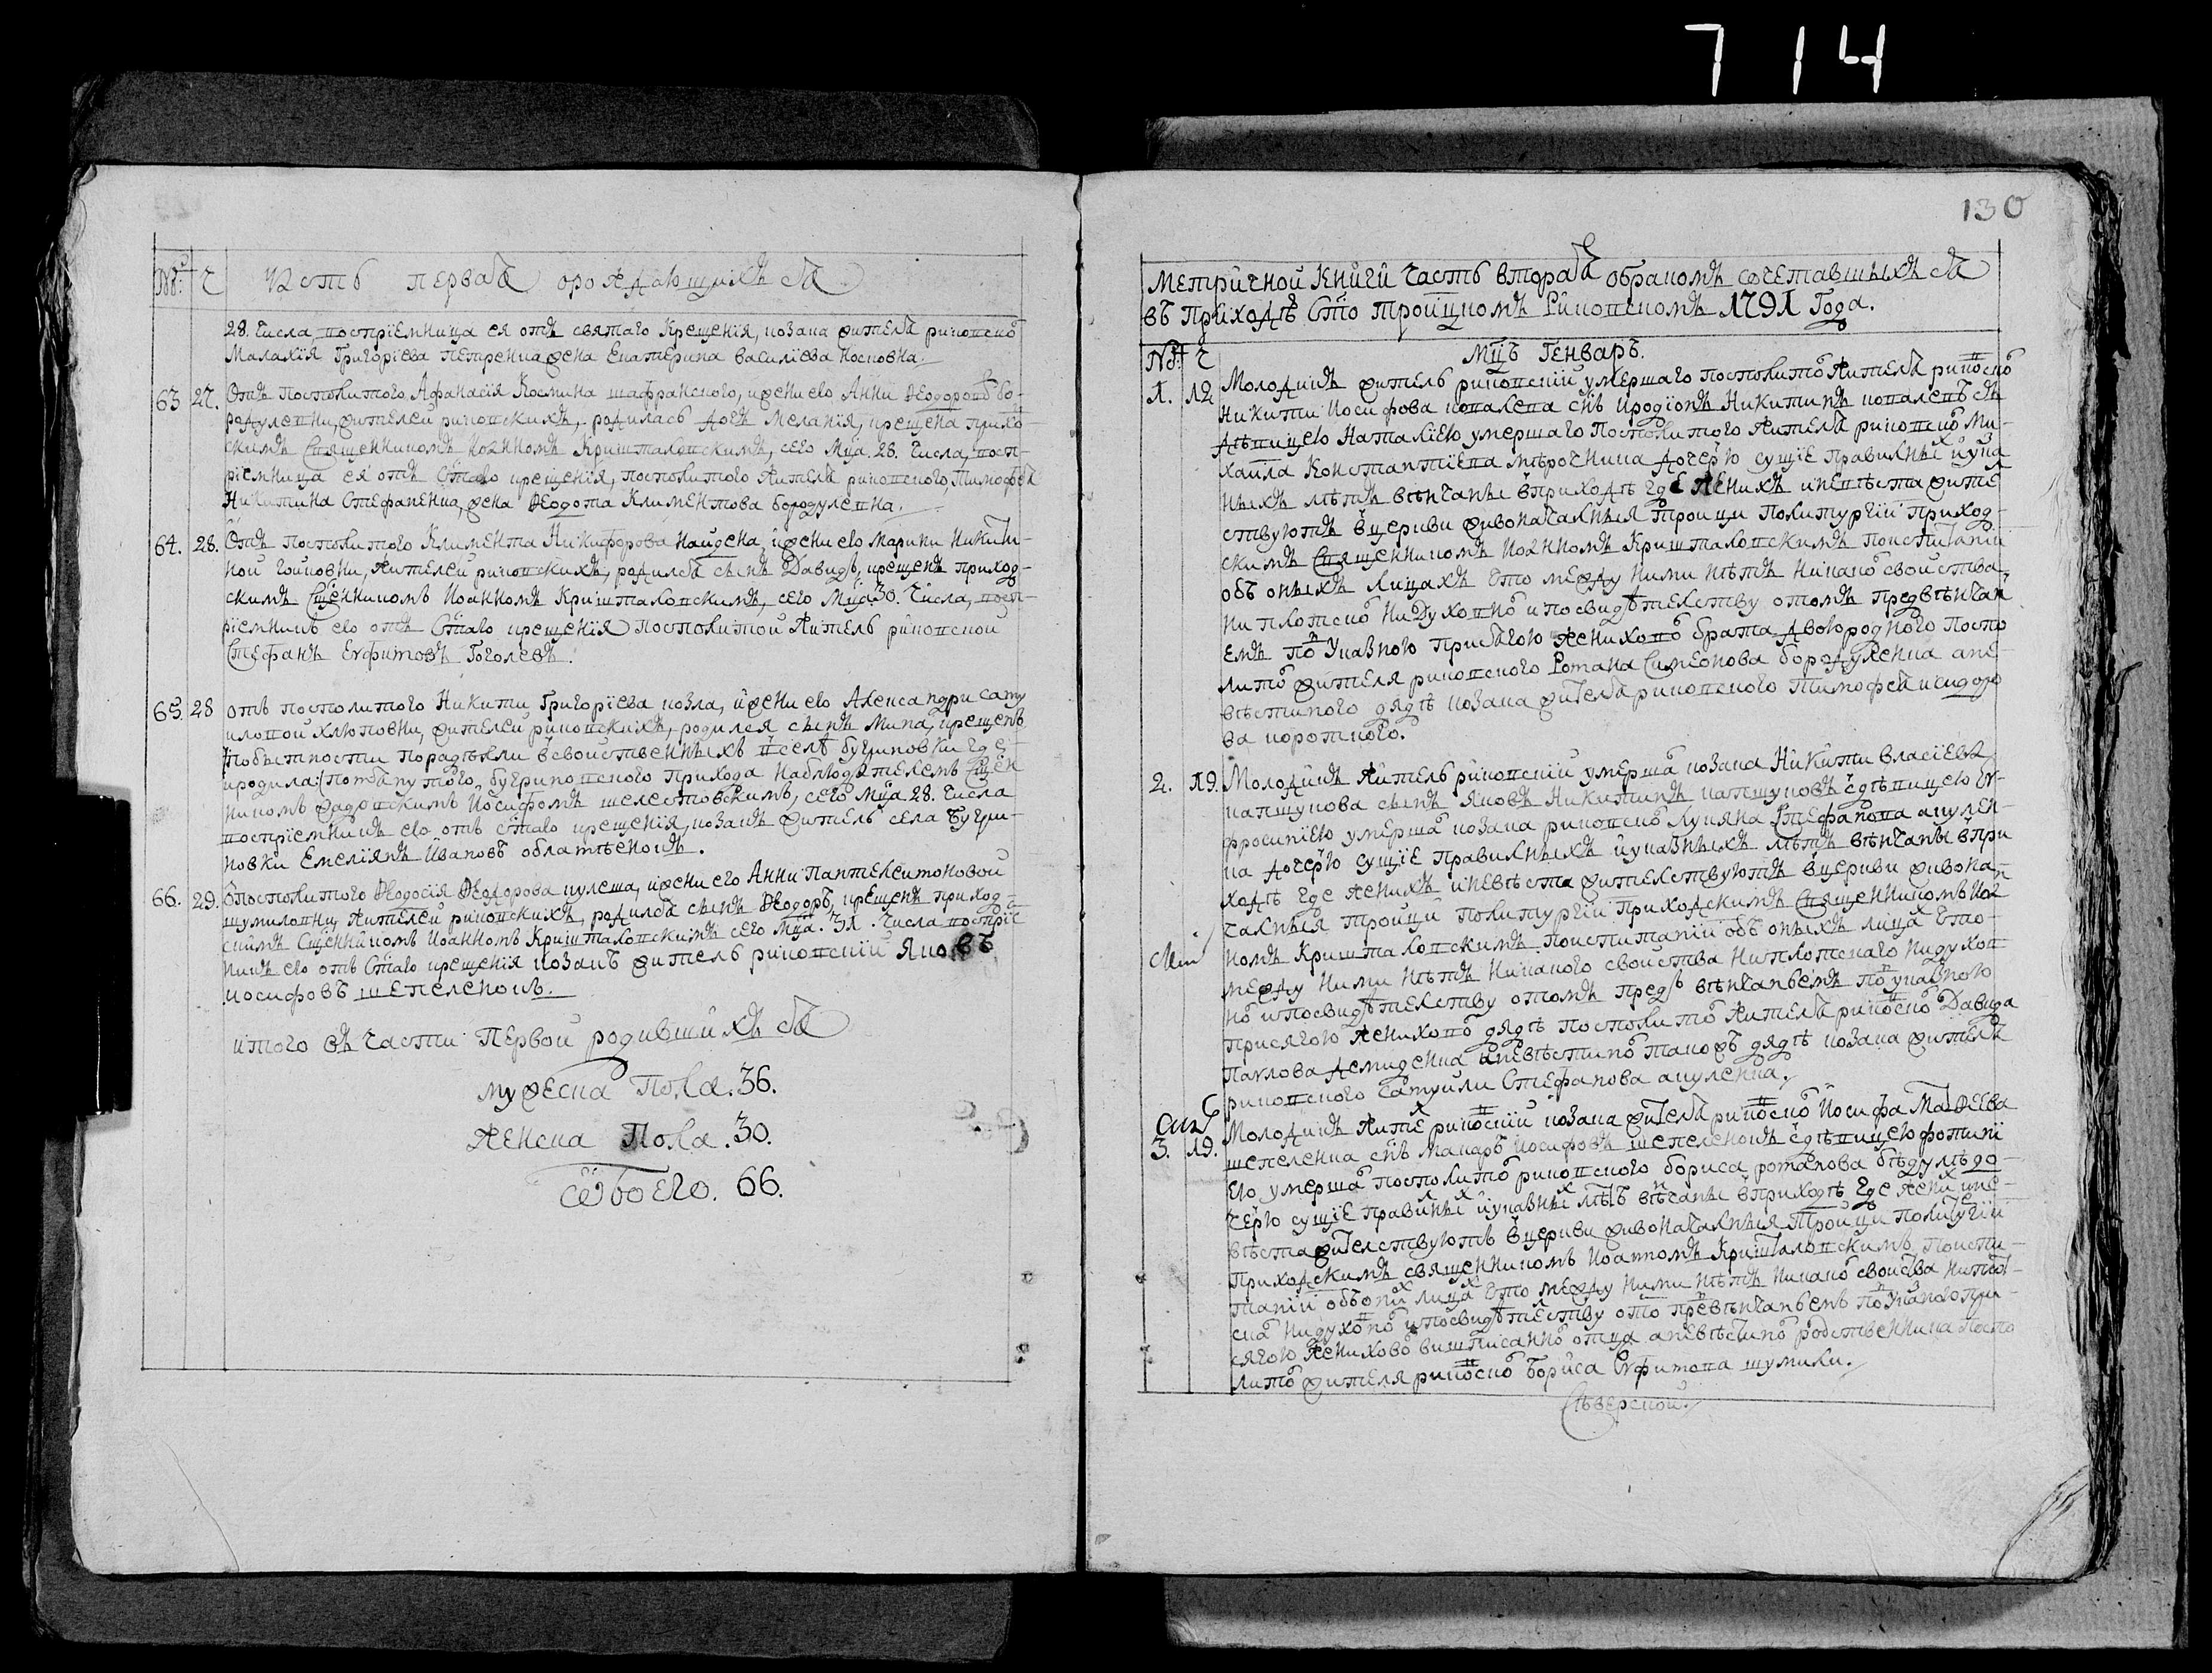 714
130
№: Ч Часть первая о рождающихся
28. числа, воспріемница ея отъ святаго крещенія, козака жителя риковско
Малахія Григоріева Петренка жена Екатерина василіева
63 27. Отъ Посполитого Афанасія Космина шафранского, и жени его Анни Ѳеодоровой бо-
родулевни, жителей риковскихъ, родилась дочь Меланія, крещена прихо-
скимъ Священникомъ Иоанномъ Кришталовскимъ, сего Мца. 28. числа, восп-
ріемница ея отъ Стаго крещенія, посполитого жителя риковского, Тимофея
Никитина Стефаненка, жена Ѳеодота Климентова бородулевна.
64. 28. Отъ посполитого Климента Никифорова Найдена, и жени его Марини Никити-
ной жителей риковскихъ, родился сынъ Давидъ, крещенъ приход-
скимъ Сщенникомъ Иоанномъ Кришталовскимъ, сего Мца 30. числа, восп-
ріемникъ его отъ Стаго крещенія посполитой житель риковской
Стефанъ Евфимовъ Гоголевъ.
65. 28 отъ посполитого Никити Григоріева козла, и жени его Александри саму
иловой хлюповни, жителей риковскихъ, родился сынъ Мина, крещенъ
по бытности породѣли в свойственныхъ в селѣ бугриновки где
и родила по тамутого, бугриновского прихода наблюдателемъ Сщен
никомъ Иосифомъ шелестовскимъ, сего Мца 28. числа
воспріемникъ его отъ стаго крещенія, козакъ житель села Бугри-
новки Емеліянъ Ивановъ
66. 29. Посполитого Ѳеодосія Ѳеодорова кулеша, и жени его Анни Пантелеимоновой
шумиловни, жителей риковскихъ, родился сынъ Ѳеодоръ, крещенъ приход-
скимъ Сщенникомъ Иоанномъ Кришталовскимъ сего Мца. 31. числа воспріе
никъ его отъ Стаго крещенія козакъ житель риковскій Яковъ
иосифовъ шепеленокъ.
итого въ части Первой родившихся
мужеска Пола. 36.
женска Пола. 30.
обоего. 66.
Метричной Книги часть вторая о бракомъ сочетавшыхся
въ Приходѣ Сто Троицкомъ Риковскомъ 1791 Года.
№: Ч Мцъ Генваръ.
1. 12 Молодикъ житель риковскій умершаго посполито жителя риковско
Никити Иосифова коваленка снъ Иродіонъ Никитинъ ковалевъ съ
дѣвицею Наталіею умершаго Посполитого жителя риковско Ми-
хаила Константіева мѣрочника дочерю сущіе правилные и ука
ныхъ лѣтъ вѣнчаны в приходѣ где женихъ и невѣста жите
ствуютъ в церкви живоначалныя Троици По литургіи приход-
скимъ Священникомъ Иоанномъ Кришталовскимъ по испитаніи
объ оныхъ лицахъ что между ними нѣтъ никако свойства
ни плотско ни духовно и по свидѣтелству о томъ предвѣнчан
емъ по указною присягою жениховo брата двоюродного поспо
лито жителя риковского Романа Симеонова бородуленка а не-
вѣстиного дядѣ козака жителя риковского Тимофея исидоро
ва короткого.
2. 19. Молодикъ житель риковскій умерша козака Никити Власіева
капшукова сынъ Яковъ Никитинъ капшуковъ с дѣвицею Ев-
фросиніею умерша козака риковско Лукяна Стефанова акулен-
ка дочерю сущіе правилныхъ и указныхъ лѣтъ вѣнчаны в при
ходѣ где женихъ и невѣста жителствуютъ в церкви живона-
чалныя Троици По литургіи приходскимъ Священникомъ Иоа
номъ Кришталовскимъ по испитаніи объ оныхъ лица что
между ними нѣтъ никакого свойства ни плотскаго ни духов
но и по свидѣтелству о томъ предъ вѣнчаньемъ по указною
присягою жениховo дядѣ посполито жителя риковско Давида
Павлова демиденка а невѣстино такожъ дядѣ козака жителя
риковского Самуили Стефанова акуленка.
3. 19. Молодикъ жите риковскій козака жителя риковско Иосифа Матѳеева
шепеленка снъ Макаръ Иосифовъ шепеленокъ с дѣвицею фотині
ею умерша посполито риковского бориса романова до-
черю сущіе правилны и указны лѣтъ вѣчаны в приходѣ где жени и не-
вѣста жителствуютъ в церкви живоначалныя Троици По литугіи
приходскимъ священникомъ Иоанномъ Кришталовскимъ по испи-
таніи объ оны лица что между ними нѣтъ никако свойства ни плот-
ска ни духовно и по свидѣтелству о то превѣнчаньемъ по указного при-
сягою женихово вишписанно отца а невѣстино родственника поспо
лито жителя риковско Бориса Евфимова шумили.
Сѣверской.